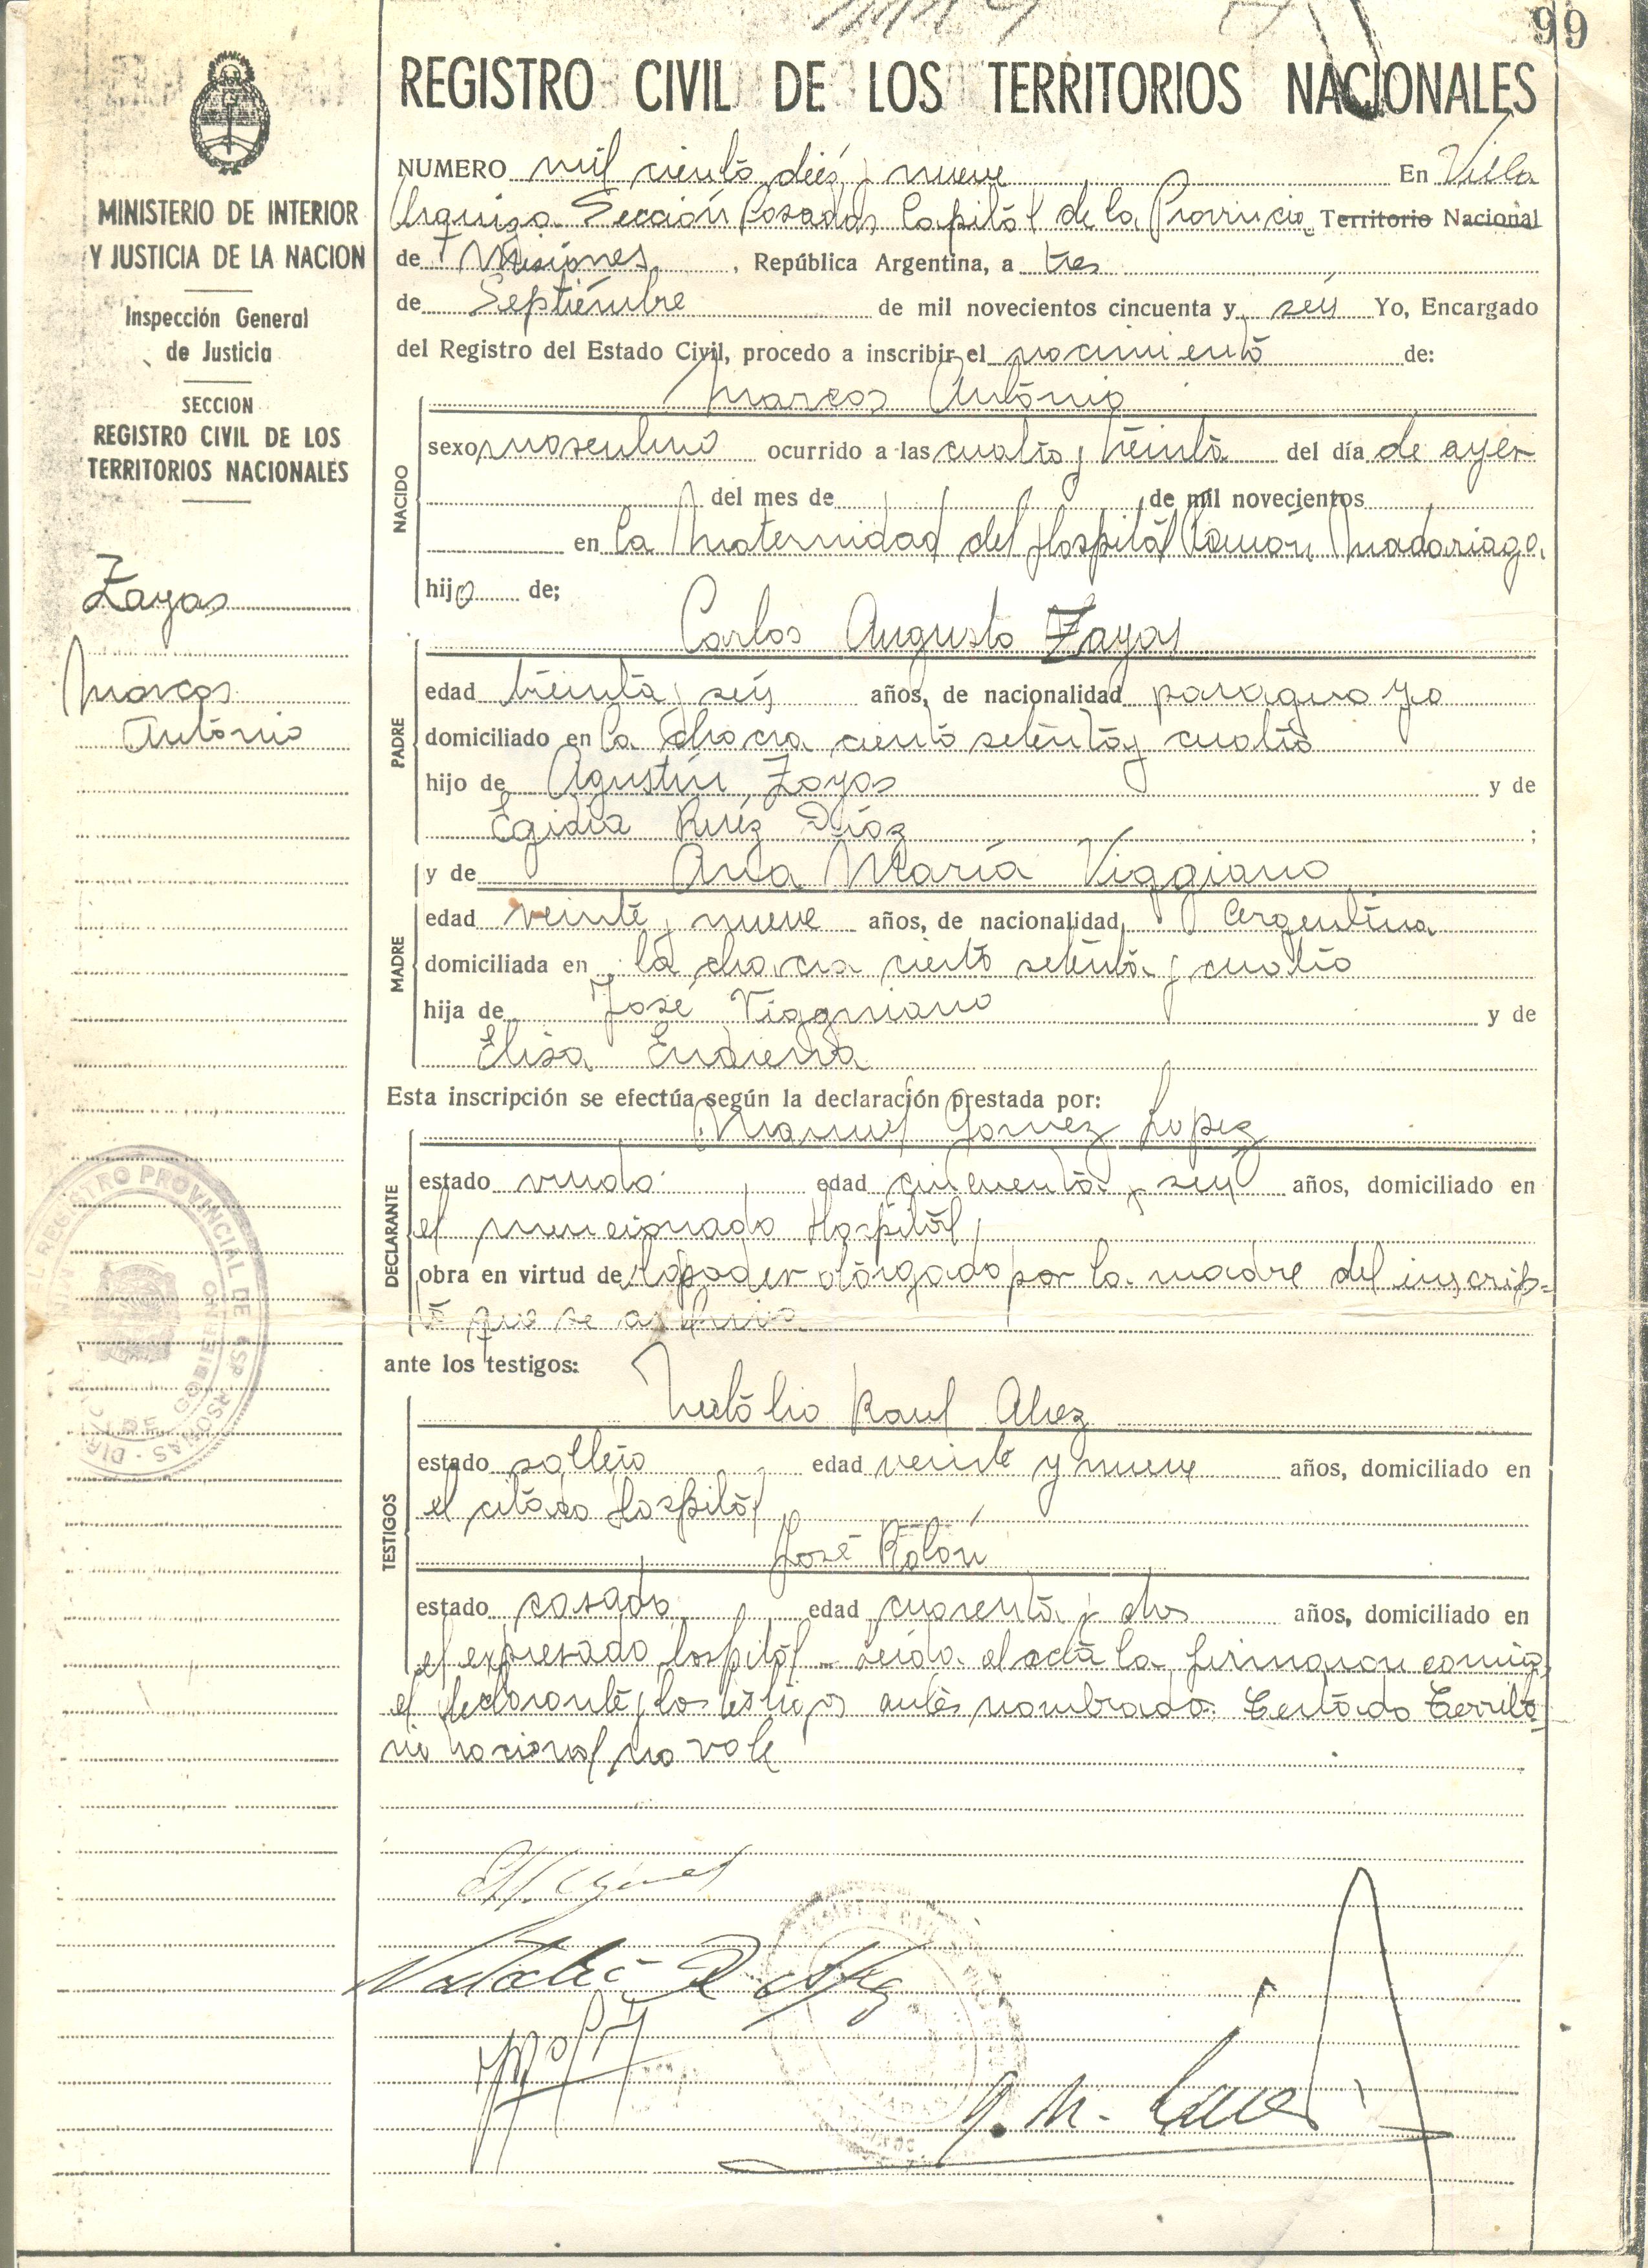 99
REGISTRO CIVIL DE LOS TERRITORIOS NACIONALES
MINISTERIO DE INTERIOR
Y JUSTICIA DE LA NACION
Inspección General
de Justicia
SECCION
REGISTRO CIVIL DE LOS
TERRITORIOS NACIONALES
Zayas
Marcos
António
NUMERO mil ciento diéz y nueve En Villa
Urquiza Sección Posadas Capital de la Provincia Territorio Nacional
de Misiones, República Argentina, a tres
de Septiémbre de mil novecientos cincuenta y seis Yo, Encargado
del Registro del Estado Civil, procedo a inscribir el nacimiento de:
Marcos António
NACIDO
sexo masculino ocurrido a las cuatro y treinta del día de ayer
del mes de de mil novecientos
en la Maternidad del Hospital Ramón Madariaga
hijo de;
Carlos Augusto Zayas
PADRE
edad treinta y seis años, de nacionalidad paraguayo
domiciliado en la chacra ciento setenta y cuatro
hijo de Agustín Zayas y de
Egidia Ruíz Díaz ;
y de Ana María Viggiano
MADRE
edad veinte y nueve años, de nacionalidad Argentina
domiciliada en la chacra ciento setenta y cuatro
hija de José Viggniano y de
Elisa
Esta inscripción se efectúa según la declaración prestada por:
Manuel Gomez Lopez
DECLARANTE
estado viudo edad cincuenta y seis años, domiciliado en
el mencionado Hospital,
obra en virtud de poder otorgado por la madre del inscrip-
to que se archiva.
ante los testigos:
Natálio Raul Alvez
TESTIGOS
estado soltero edad veinte y nueve años, domiciliado en
el citado Hospital
José Rolón
estado casado edad cuarenta y dos años, domiciliado en
el expresado hospital - leida el acta la firmaron conmigo
el declarante y los testigos antes nombrados. Testado Territo-
rio nacional no vale